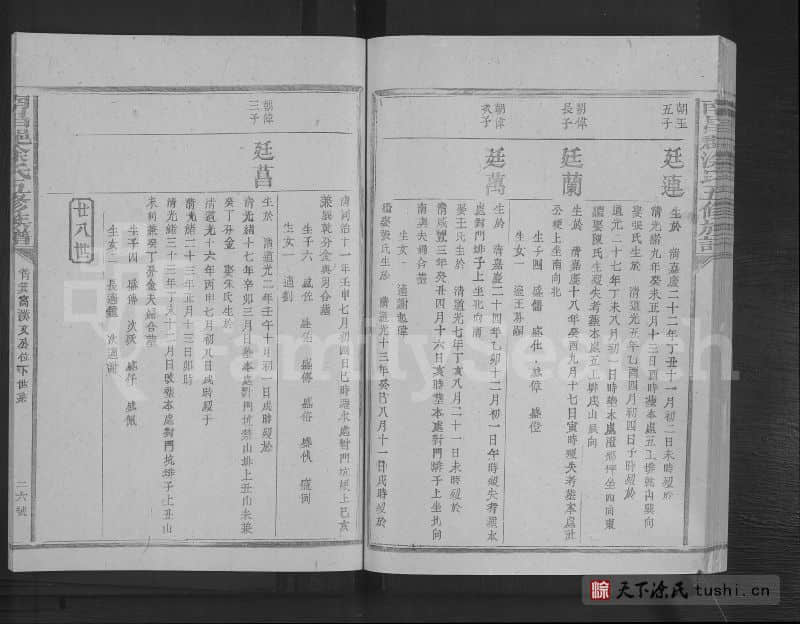 朝玉
五子
廷連
生於
清嘉慶二十二年丁丑十一月初二日未時歿於
清光緒九年癸未正月十三日酉時塟本處五工排乾山巽向
娶張氏生於
清道光五年乙酉四月初四日子時歿於
道光二十七年丁未八月初一日時塟
續娶陳氏生歿失考塟本處
朝偉
長子
廷蘭
生於
清嘉慶十八年癸酉九月十七日寅時歿失考塟本處
公梗上坐南向北
生子四 盛儒 盛仕 盛偉 盛僜
生女一 適王
朝偉
次子
廷萬
生於
清嘉慶二十四年乙卯十二月初一日午時歿失考塟本
處對門排子上坐北向南
娶王氏生於
清道光七年丁亥八月二十一日未時歿於
清咸豐三年癸丑四月十六日亥時塟本處對門排子上坐北向
南與夫歸合塋
生女一 適謝
繼娶張氏生於
清道光十三年癸巳八月十一日戌時歿於
清同治十一年壬申七月初四日巳時塟本處對門坑排上巳亥
兼巽乾分金與男合塋
生子六 盛佐 盛佑 盛傳 盛俗 盛伕
生女一 適劉
朝偉
三子
廷菖
生於
清道光二年壬午十一月初一日戌時歿於
清光緒十七年辛卯三月日塟本處對門坑禁山排上丑山未兼
癸丁分金 娶朱氏生於
清道光十六年丙申七月初八日戌時歿于
清光緒二十三年正月十三日卯時
清光緒三十三年丁未十一月日改塟本處對門坑排子上丑山
未利兼癸丁分金夫婦合塋
生子四 盛傳 次 盛仔 盛佩
生女二 長適羅 次適謝
廿八世
二六號
天下涂氏 tushi.cn
FamilySearch